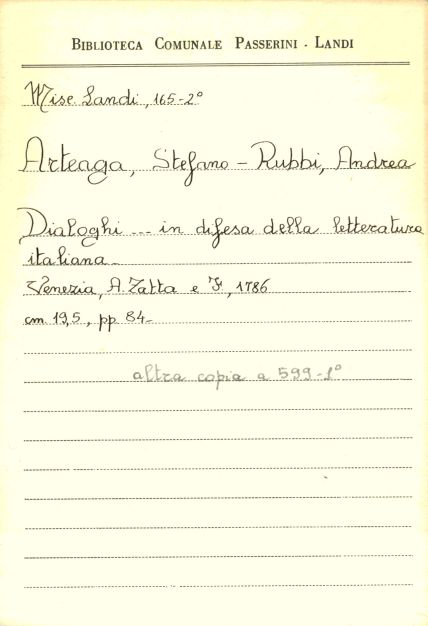 BIBLIOTECA COMUNALE PASSERINI - LANDI
Misc Landi, 165-2°
Arteaga, Stefano - Rubbi, Andrea
Dialoghi ... in difesa della letteratura
italiana -
Venezia, A. Zatta e F., 1786
cm 19,5, pp 84-
altra copia a 599-1°